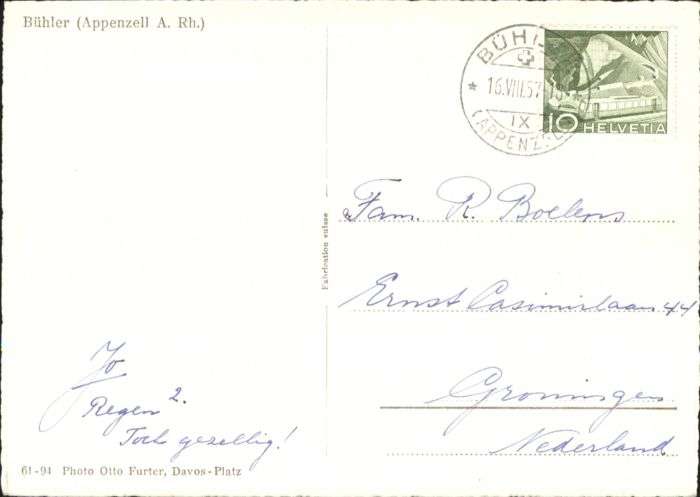 Bühler (Appenzell A. Rh.)
BÜHL
16.VIII.57
IX
(APPENZELL
10 HELVETIA
Fabrication suisse
Fam. R. Boelens
Ernst Casimirlaan 44
Groningen
Nederland
Jo
Regen².
Toch gezellig!
61-94 Photo Otto Furter, Davos-Platz